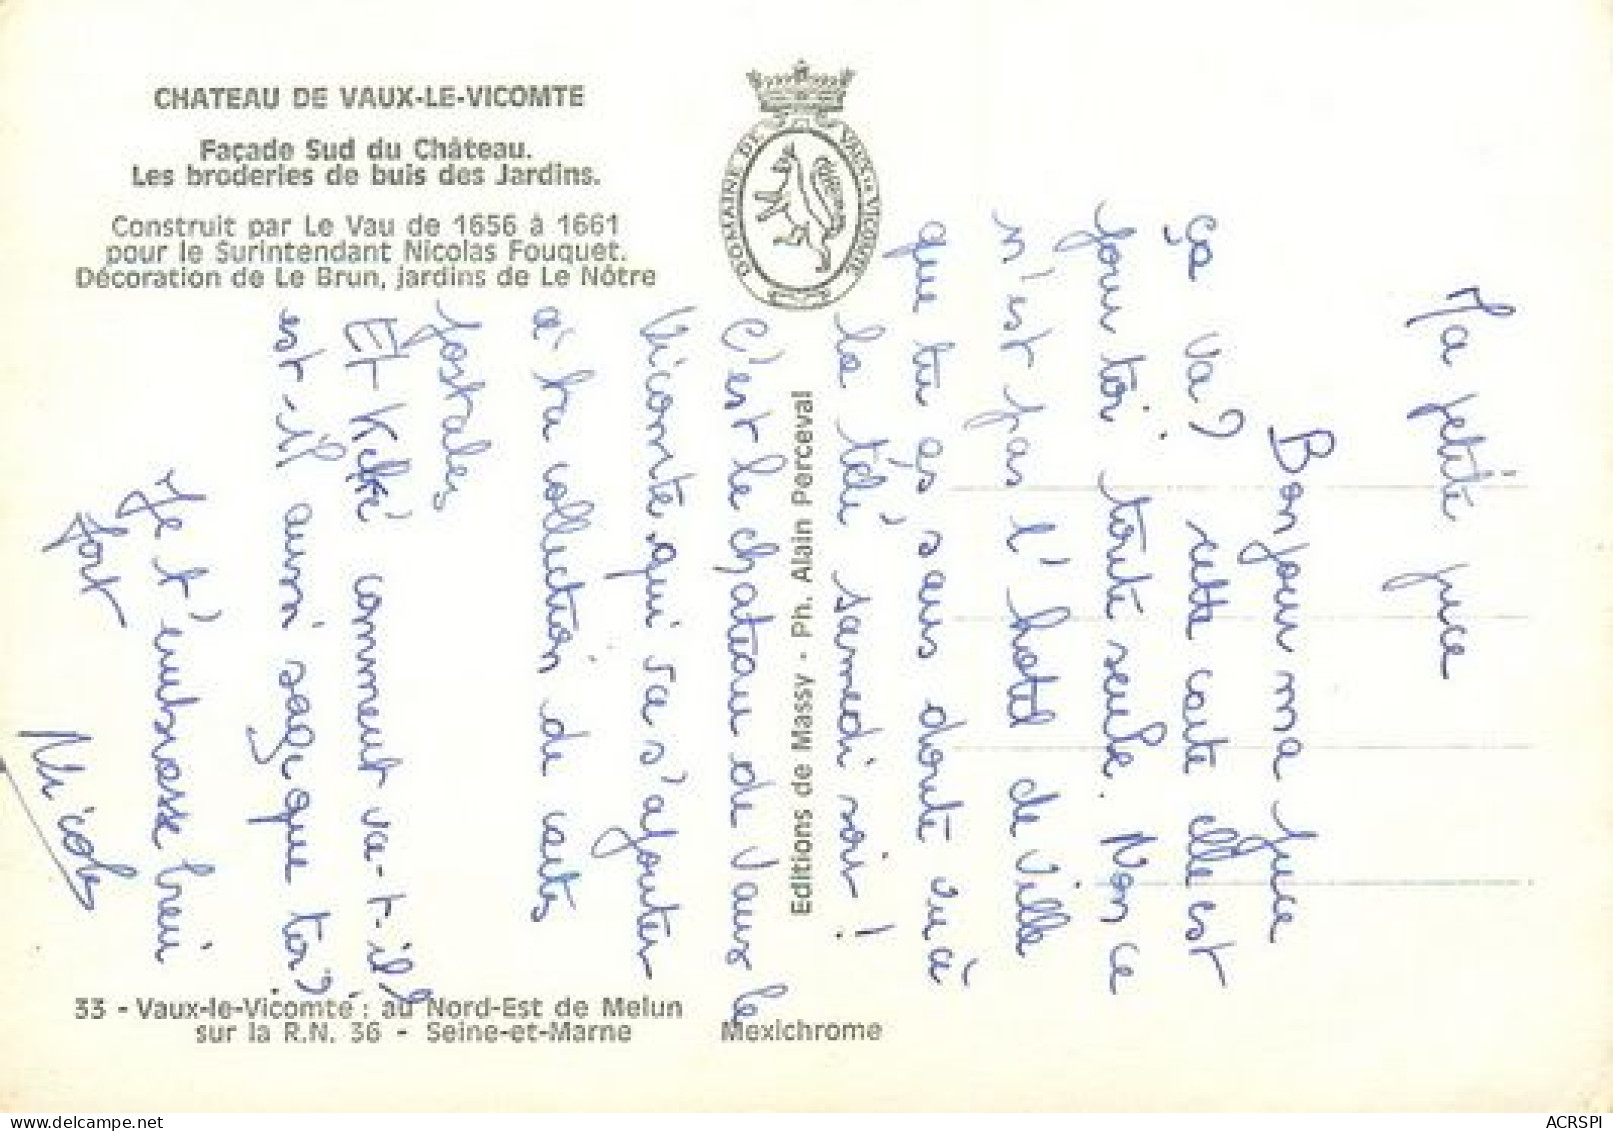 CHATEAU DE VAUX-LE-VICOMTE
Façade Sud du Château.
Les broderies de buis des Jardins.
Construit par Le Vau de 1656 à 1661
pour le Surintendant Nicolas Fouquet.
Décoration de Le Brun, jardins de Le Nôtre
DOMAINE DE VAUX LE VICOMTE
Editions de Massy - Ph. Alain Perceval
33 - Vaux-le-Vicomte : au Nord-Est de Melun
sur la R.N. 36 - Seine-et-Marne
Mexichrome
Ma petite puce
Bonjour ma puce
ça va? cette carte elle est
pour toi toute seule. Non ce
n'est pas l'hotel de ville
que tu as sans doute vu à
la télé samedi soir!
C'est le chateau de Vaux le
Vicomte qui va s'ajouter
à ta collection de cartes
postales
Et Kiki comment va-t-il?
est-il aussi sage que toi?
Je t'embrasse bien
fort
Nicole
ACRSPI